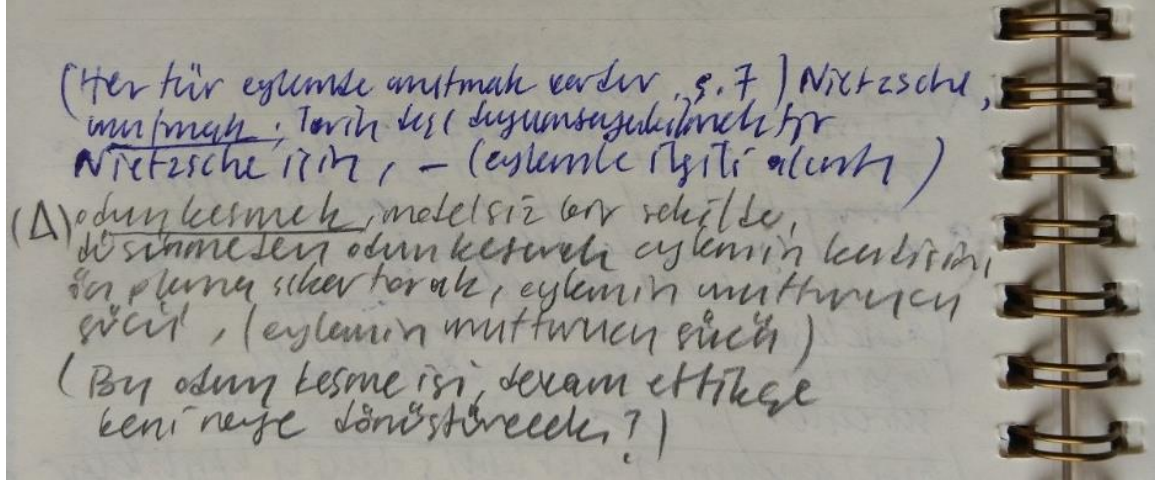 (Her tür eylemde unutmak vardır, s. 7) Nietzsche,
unutmak, Tarih dışı duyumsayabilmektir
Nietzsche için, – (eylemle ilgili alıntı)
(Δ) odun kesmek, modelsiz bir şekilde,
düşünmeden odun keserek eylemin kendisini
ön plana çıkartarak, eylemin unutturucu
gücü, (eylemin unutturucu gücü)
(Bu odun kesme işi, devam ettikçe
beni neye dönüştürecek?)